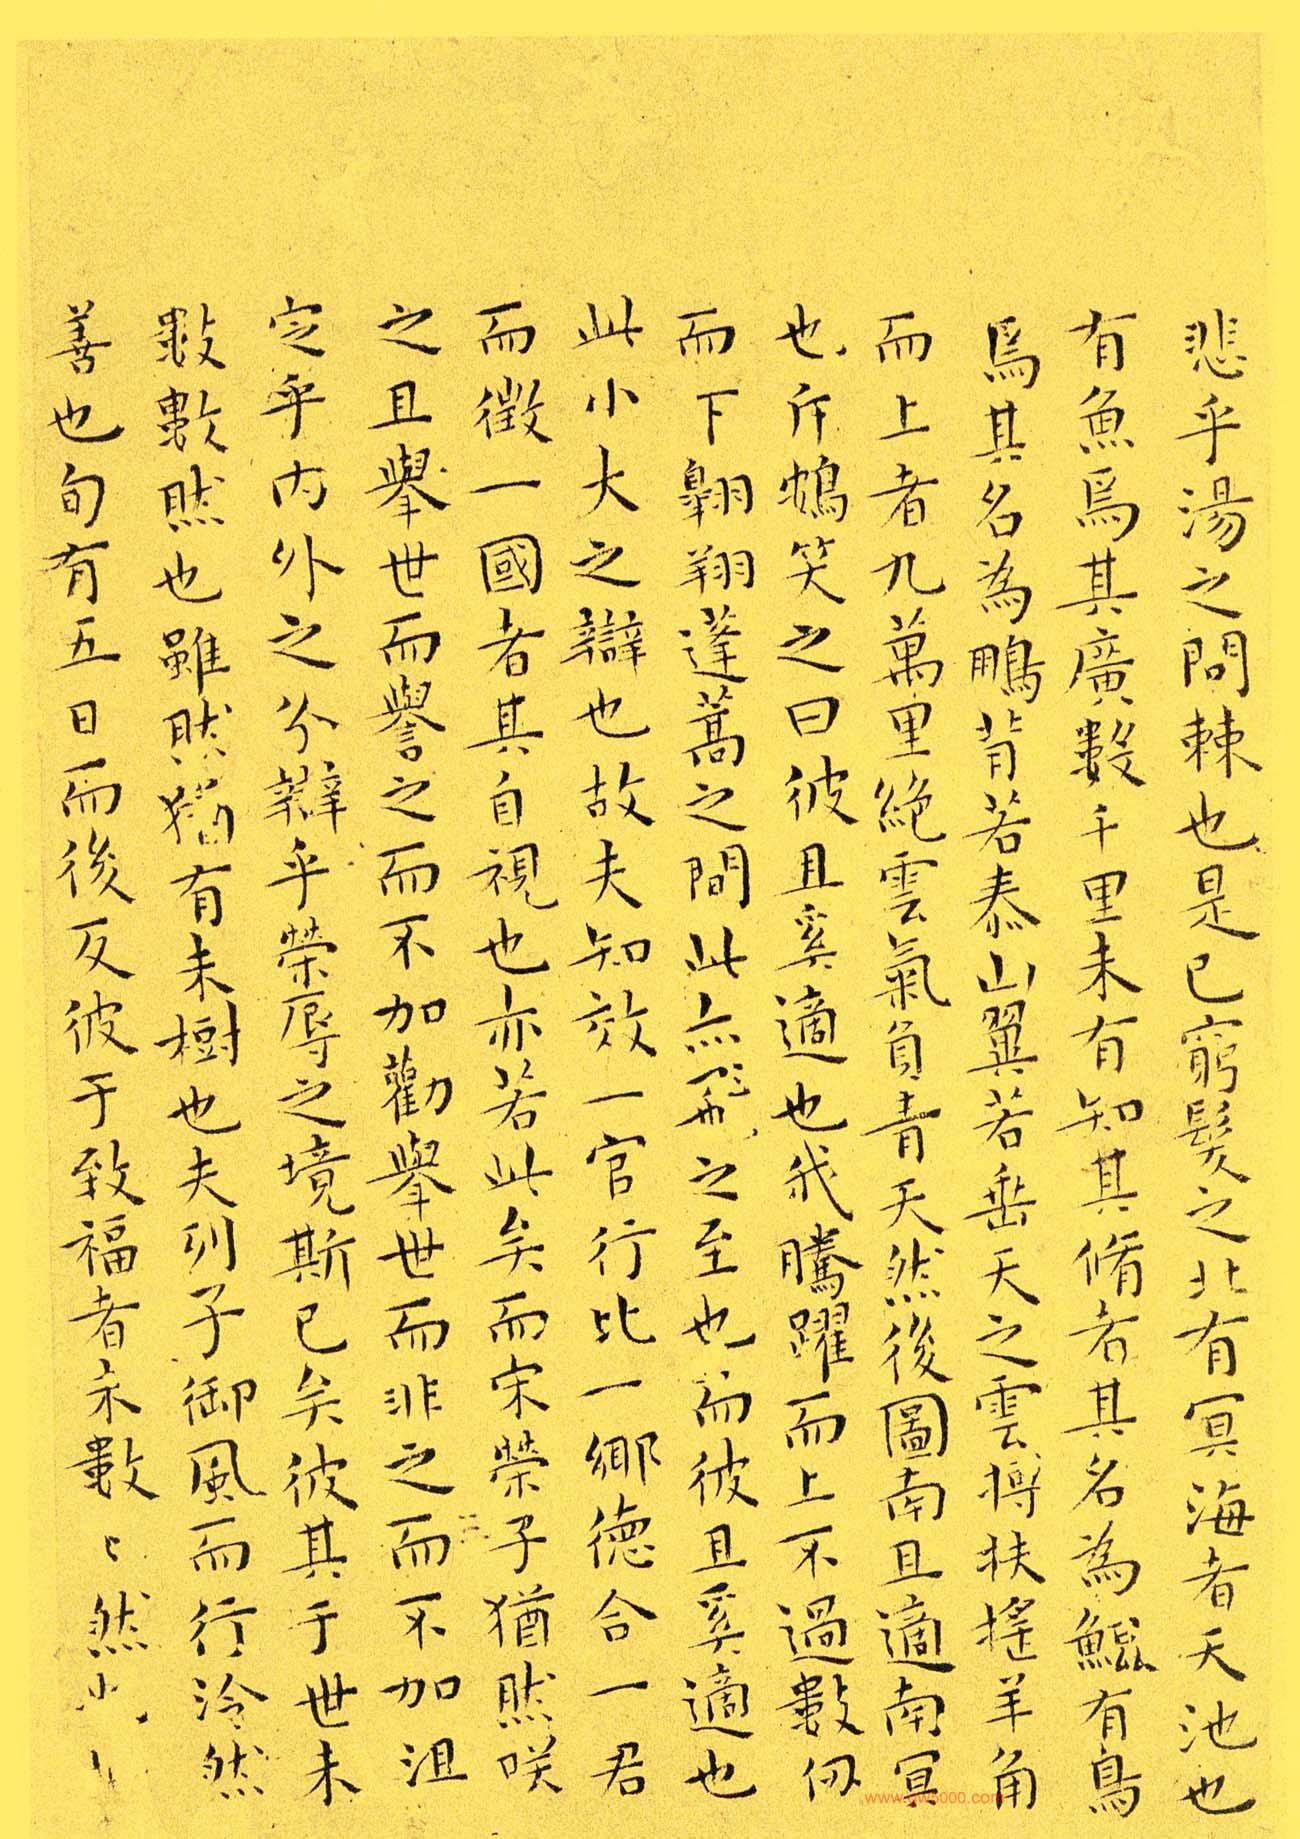 悲乎湯之問棘也是已窮髮之北有冥海者天池也
有魚焉其廣數千里未有知其脩者其名為鯤有鳥
焉其名為鵬背若泰山翼若垂天之雲摶扶搖羊角
而上者九萬里絕雲氣負青天然後圖南且適南冥
也斥鴳笑之曰彼且奚適也我騰躍而上不過數仞
而下翱翔蓬蒿之間此亦飛之至也而彼且奚適也
此小大之辯也故夫知效一官行比一鄉德合一君
而徵一國者其自視也亦若此矣而宋榮子猶然咲
之且舉世而譽之而不加勸舉世而非之而不加沮
定乎内外之分辯乎榮辱之境斯已矣彼其于世未
數數然也雖然猶有未樹也夫列子御風而行泠然
善也旬有五日而後反彼于致福者未數〻然
www.yw5000.com